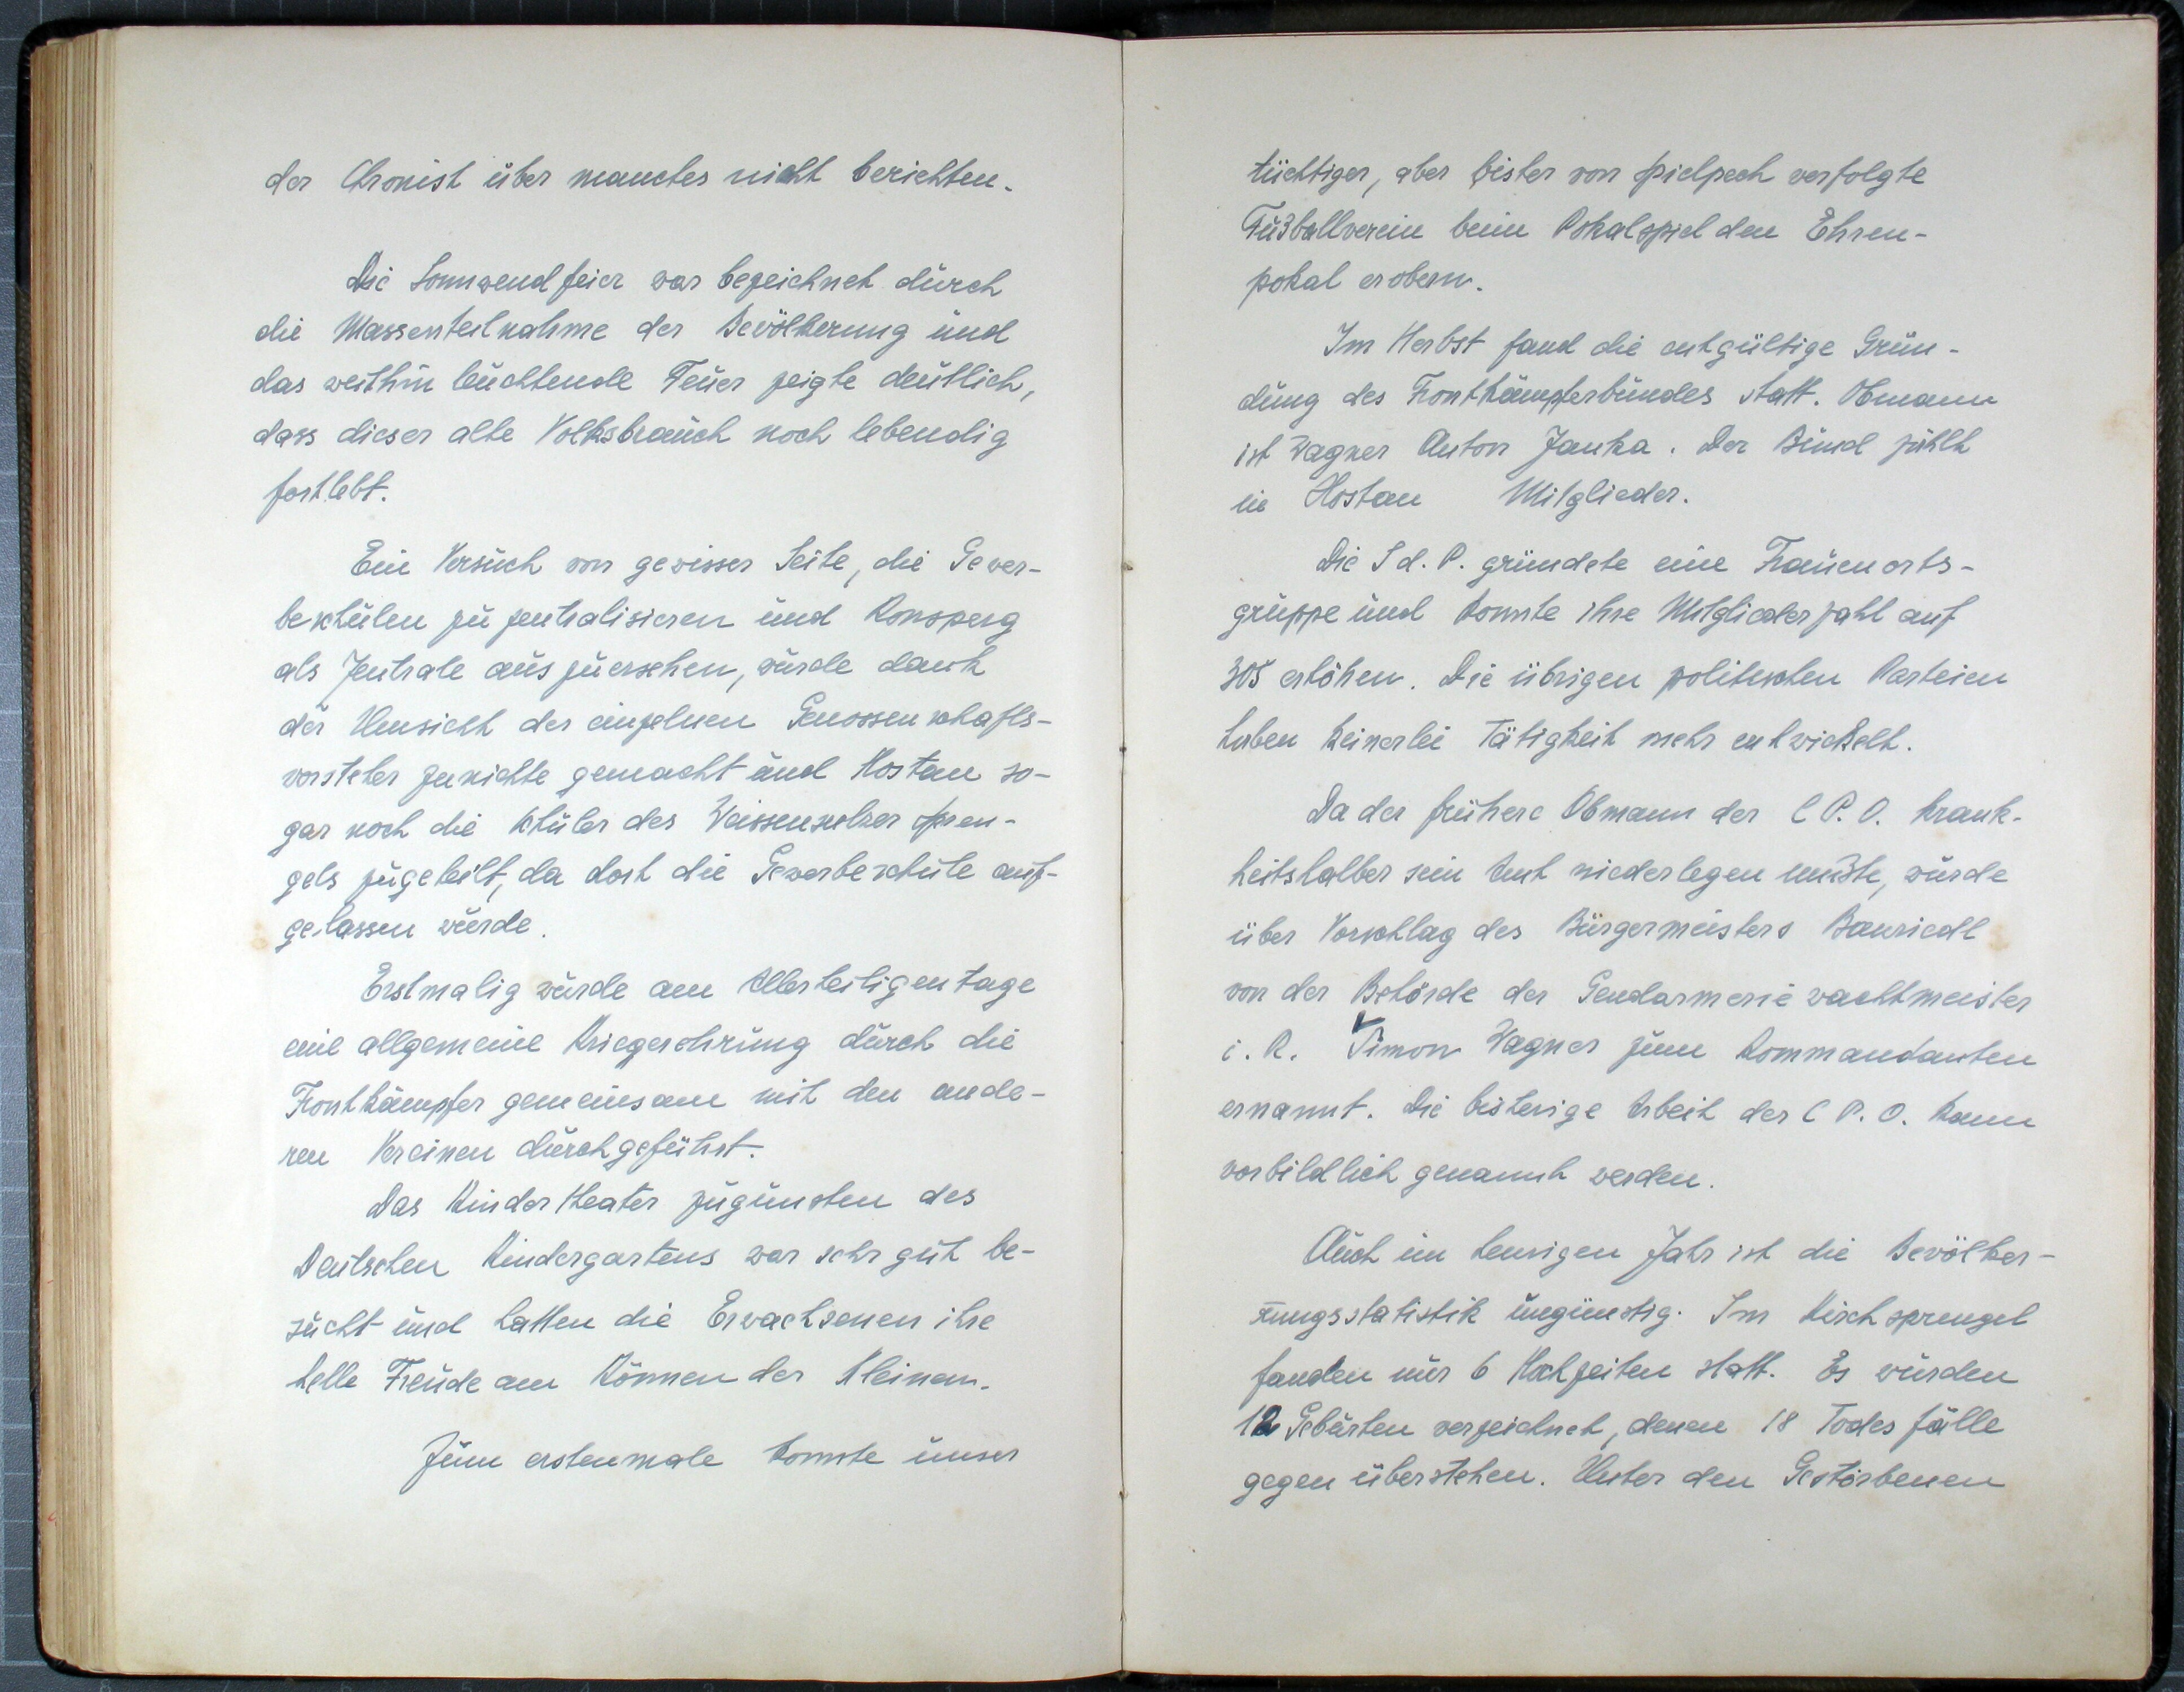 der Chronist über manches nicht berichten.
Die Sonnwendfeier war bezeichnet durch
die Massenteilnahme der Bevölkerung und
das weithin leuchtende Feuer zeigte deutlich,
dass dieser alte Volksbrauch noch lebendig
fortlebt.
Ein Versuch von gewisser Seite, die Gewer-
beschulen zu zentralisieren und Ronsperg
als Zentrale auszuersehen, wurde dank
der Umsicht der einzelnen Genossenschafts-
vorsteher zunichte gemacht und Hostau so-
gar noch die Schüler des Weissensulzer Spren-
gels zugeteilt, da dort die Gewerbeschule auf-
gelassen wurde.
Erstmalig wurde am Allerheiligentage
eine allgemeine Kriegerehrung durch die
Frontkämpfer gemeinsam mit den ande-
ren Vereinen durchgeführt.
Das Kindertheater zugunsten des
Deutschen Kindergartens war sehr gut be-
sucht und hatten die Erwachsenen ihre
helle Freude am Können der Kleinen.
Zum erstenmale konnte unser
tüchtiger, aber bisher von Spielpech verfolgte
Fußballverein beim Pokalspiel den Ehren-
pokal erobern.
Im Herbst fand die entgültige Grün-
dung des Frontkämpferbundes statt. Obmann
ist Wagner Anton Janka. Der Bund zählt
in Hostau Mitglieder.
Die S d. P. gründete eine Frauenorts-
gruppe und konnte ihre Mitgliederzahl auf
305 erhöhen. Die übrigen politischen Parteien
haben keinerlei Tätigkeit mehr entwickelt.
Da der frühere Obmann der C P. O. krank-
heitshalber sein Amt niederlegen mußte, wurde
über Vorschlag des Bürgermeisters Bauriedl
von der Behörde der Gendarmerie wachtmeister
i. R. Simon Wagner zum Kommandanten
ernannt. Die bisherige Arbeit der C P. O. kann
vorbildlich genannt werden.
Auch im heurigen Jahr ist die Bevölker-
ungsstatistik ungünstig. Im Kirchsprengel
fanden nur 6 Hochzeiten statt. Es wurden
12 Geburten verzeichnet, denen 18 Todesfälle
gegenüberstehen. Unter den Gestorbenen